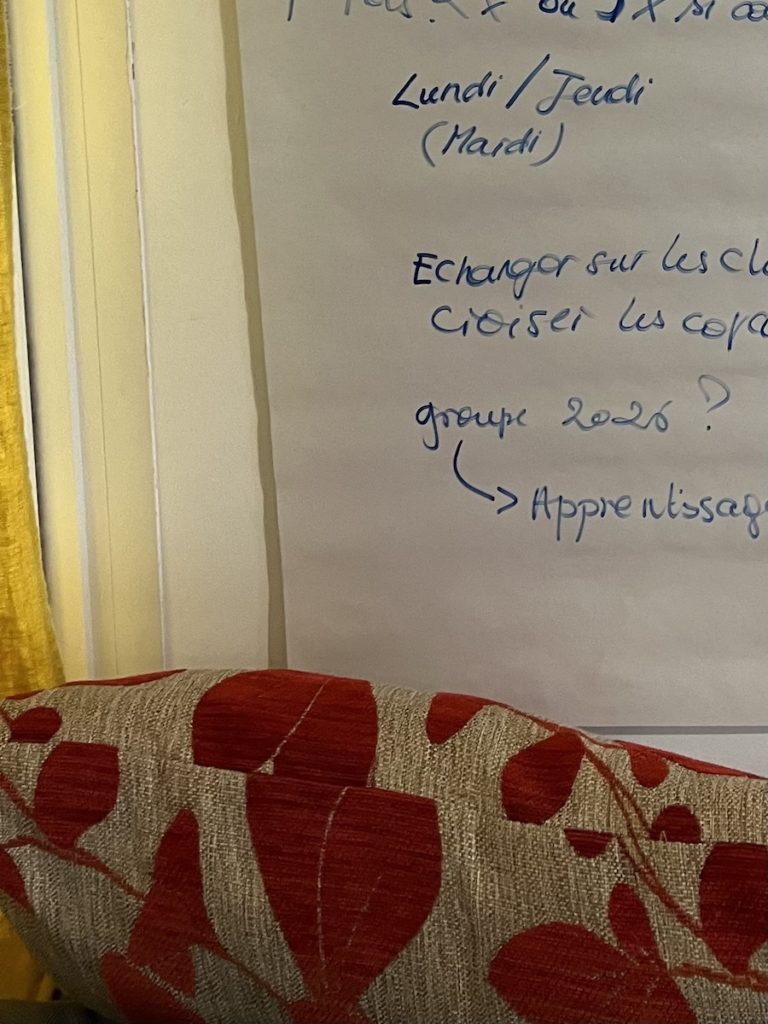 ou
Lundi / Jeudi
(Mardi)
Echanger sur les cla
Croiser les copa
groupe 2026 ?
→ Apprentissage